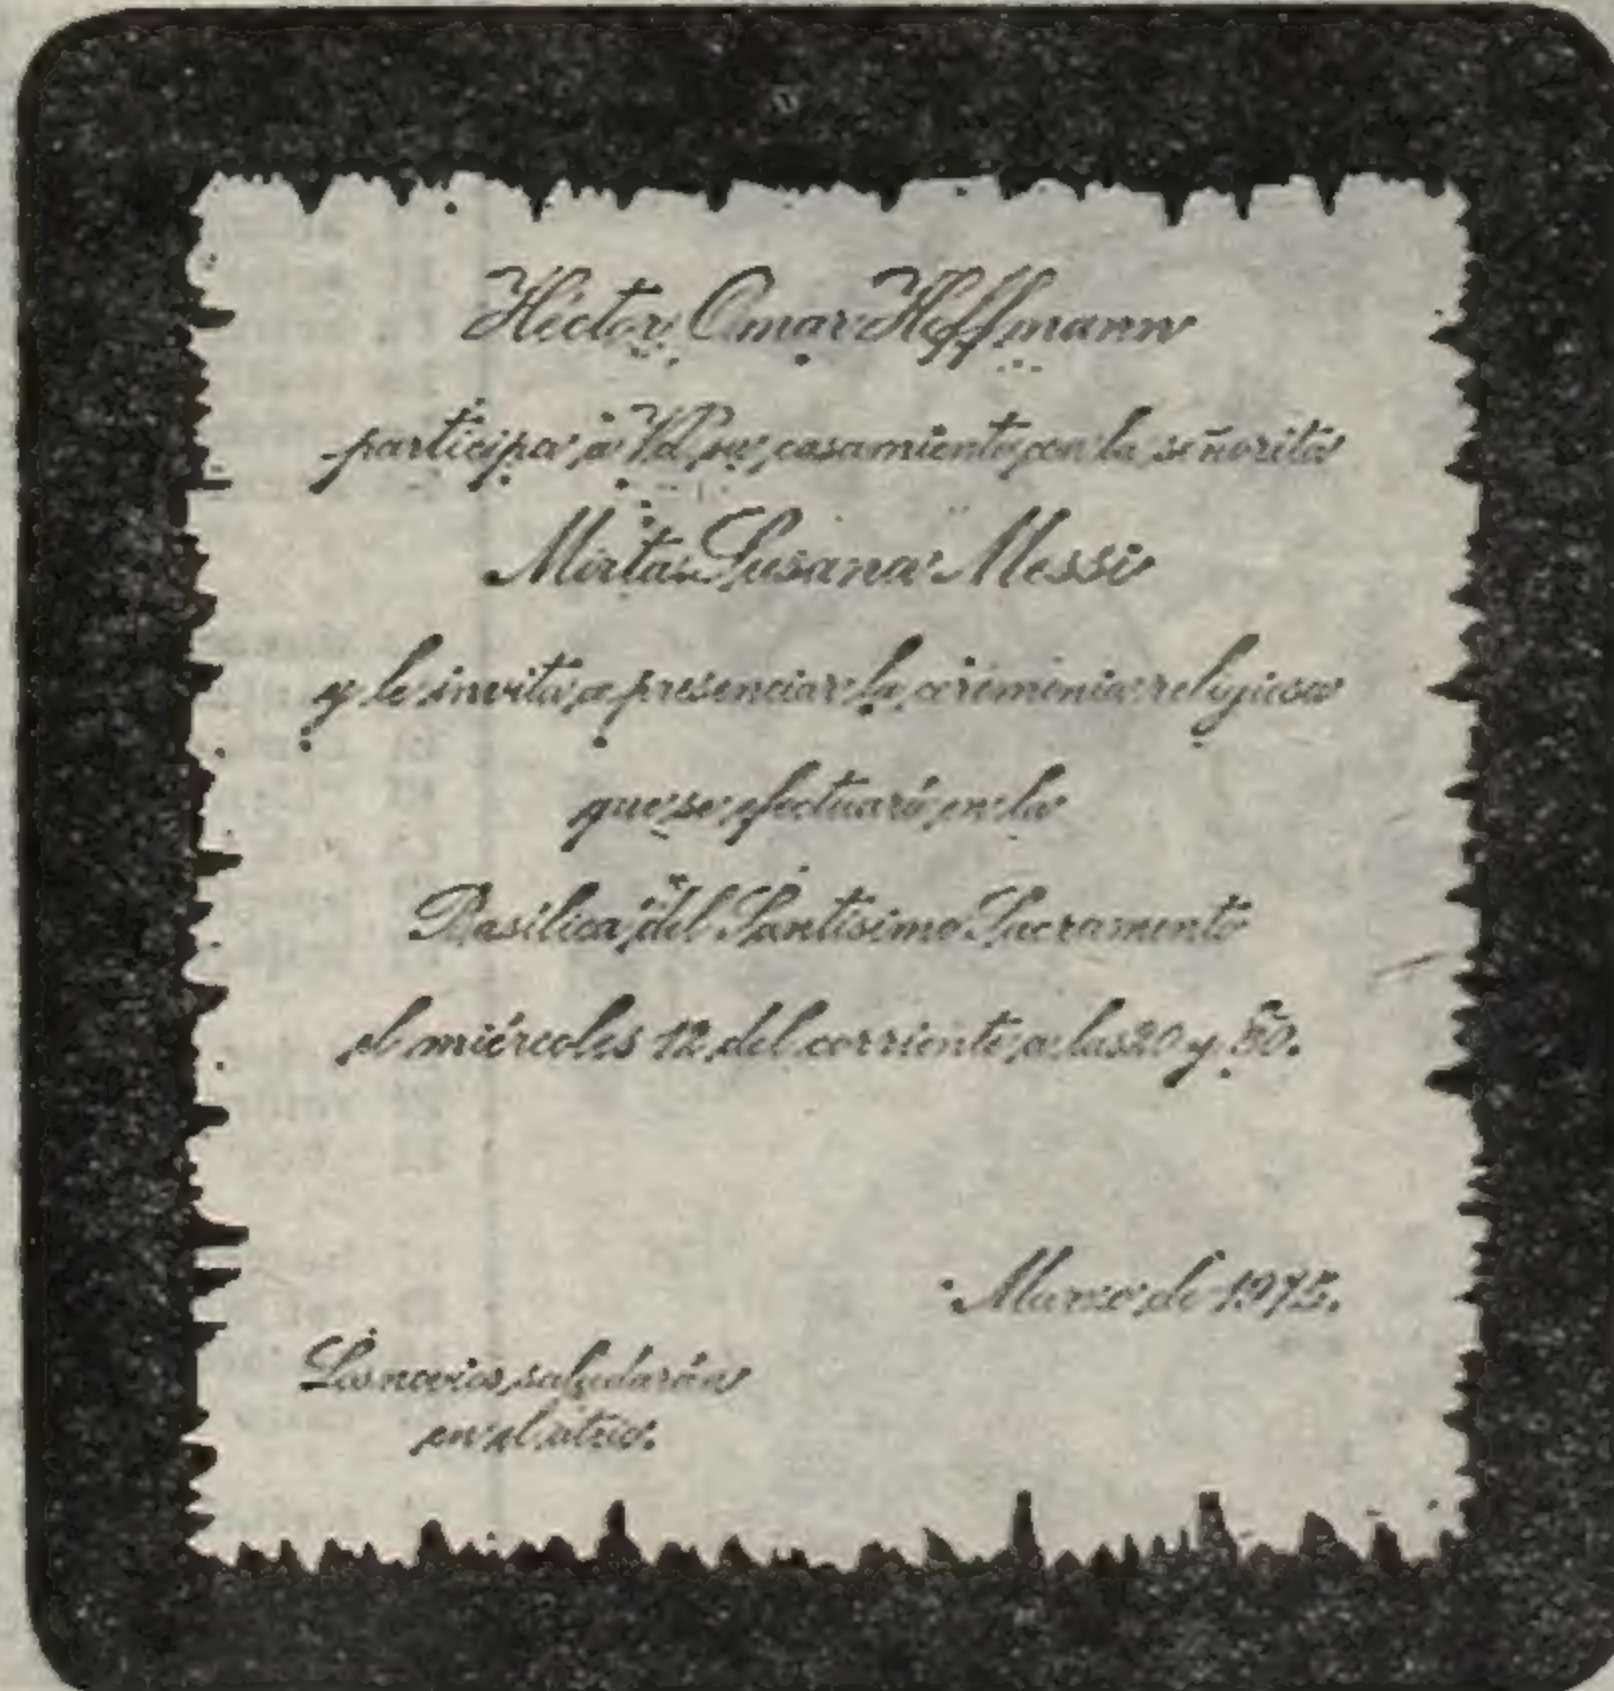 Héctor Omar Hoffmann
participa a Vd. su casamiento con la señorita
Mirta Susana Messi
y le invita a presenciar la ceremonia religiosa
que se efectuará en la
Basílica del Santísimo Sacramento
el miércoles 12 del corriente a las 20 y
Marzo de 1975.
Los novios saludarán
en el atrio.